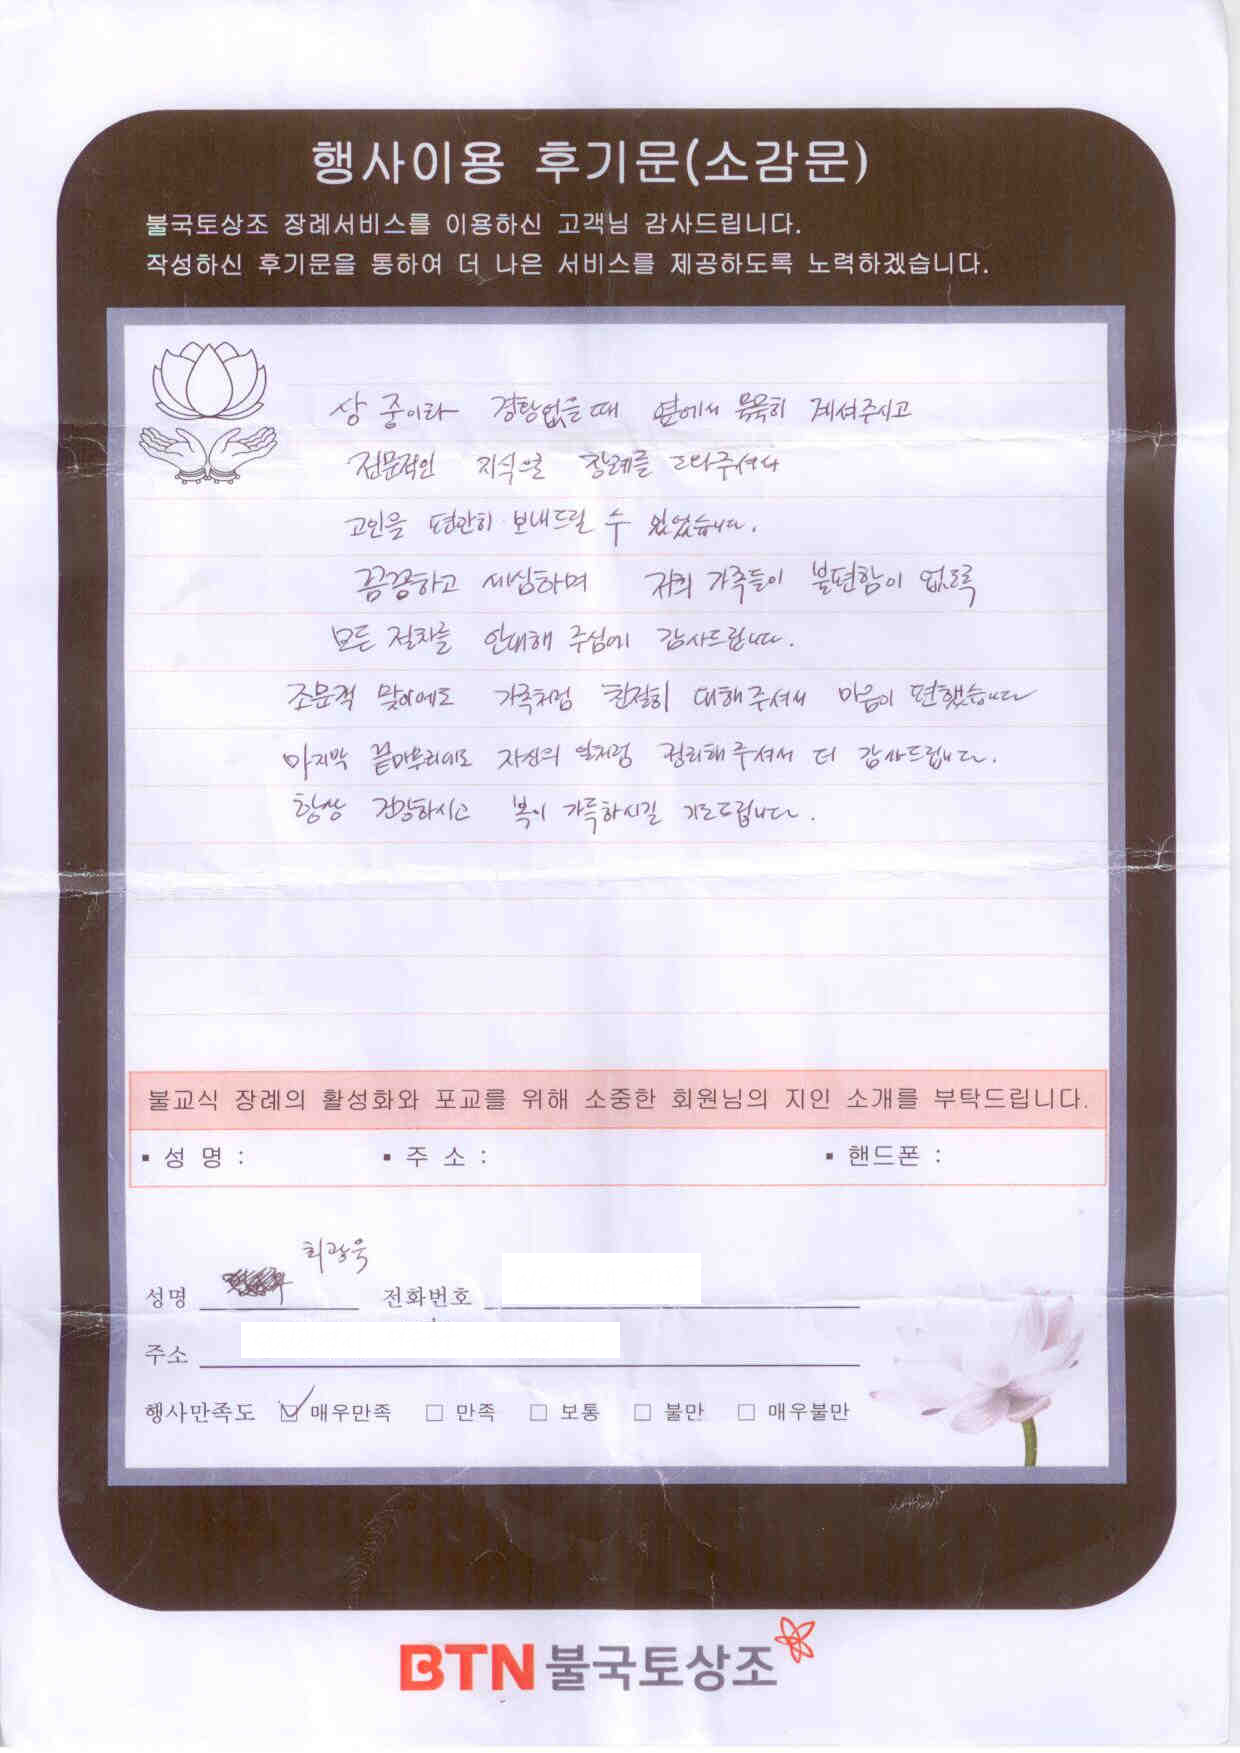 행사이용 후기문(소감문)
불국토상조 장례서비스를 이용하신 고객님 감사드립니다.
작성하신 후기문을 통하여 더 나은 서비스를 제공하도록 노력하겠습니다.
상 중이라 경황없을때 옆에서 묵묵히 계셔주시고
전문적인 지식으로 장례를 도와주셔서
고인을 편안히 보내드릴 수 있었습니다.
꼼꼼하고 세심하며 저희 가족들이 불편함이 없도록
모든 절차를 안내해 주심에 감사드립니다.
조문객 맞이에도 가족처럼 친절히 대해주셔서 마음이 편했습니다
마지막 끝마무리에도 자신의 일처럼 정리해주셔서 더 감사드립니다.
항상 건강하시고 복이 가득하시길 기도드립니다.
불교식 장례의 활성화와 포교를 위해 소중한 회원님의 지인 소개를 부탁드립니다.
▪ 성 명 : ▪ 주 소 : ▪ 핸드폰 :
최광욱
성명 전화번호
주소
행사만족도 ☑ 매우만족 □ 만족 □ 보통 □ 불만 □ 매우불만
BTN 불국토상조